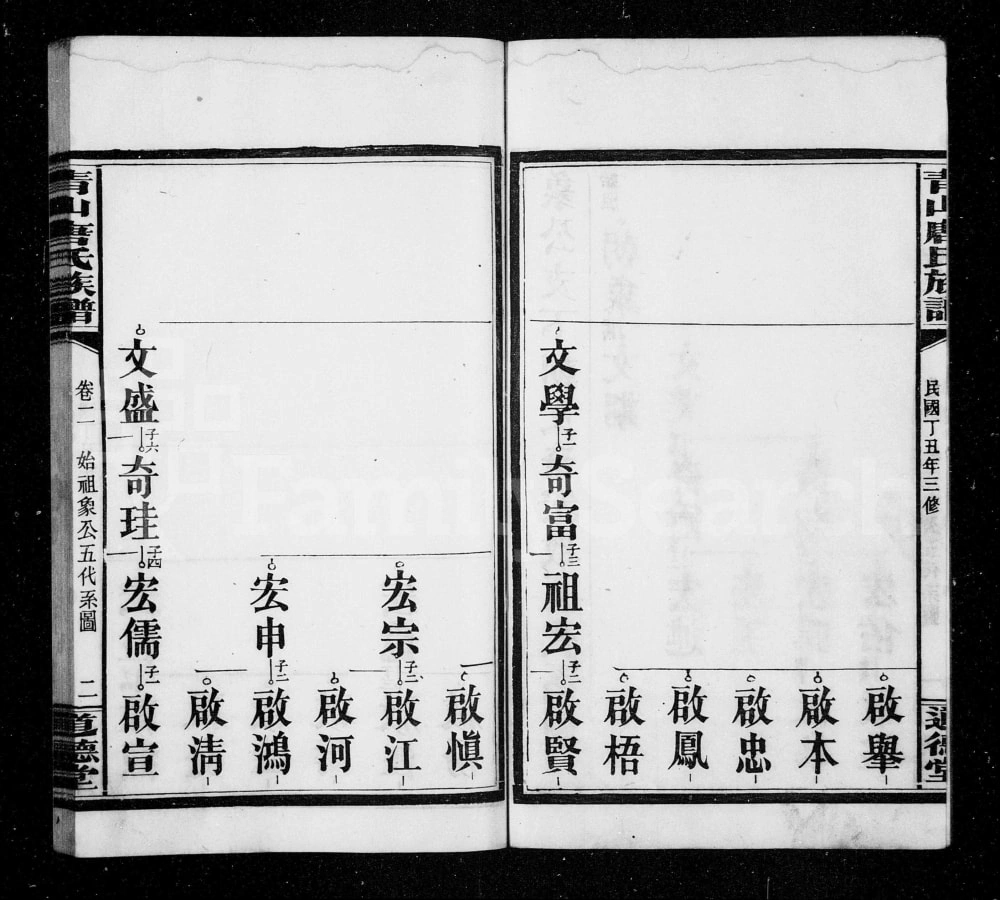 青山唐氏族譜
民國丁丑年三修
道德堂
啟舉
啟本
啟忠
啟鳳
啟梧
文學 子一 奇富 子三 祖宏 子二 啟賢
啟愼
宏宗 子二 啟江
啟河
宏申 子二 啟鴻
啟淸
文盛 子六 奇珪 子四 宏儒 子一 啟宣
青山唐氏族譜
卷二 始祖象公五代系圖 二
道德堂